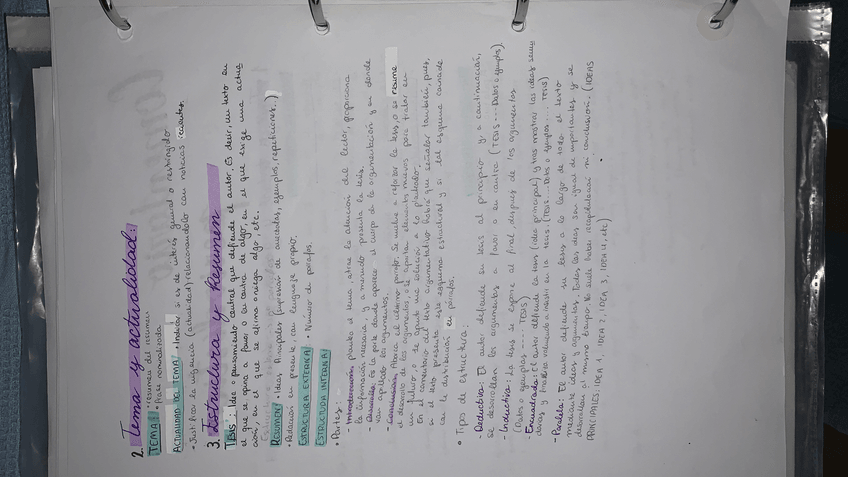 2. Tema y actualidad:
TEMA: • resumen del resumen
• Frase nominalizada
ACTUALIDAD DEL TEMA: • Indicar si es de interés general o restringido
• Justificar la vigencia (actualidad) relacionándolo con noticias recientes.
3. Estructura y Resumen
TESIS: Idea o pensamiento central que defiende el autor. Es decir, un texto en
el que se opina a favor o en contra de algo, en el que se exige una actua
ción, en el que se afirma o niega algo, etc.
RESUMEN: • Ideas Principales (supresión de anécdotas, ejemplos, repeticiones...)
• Redacción en presente, con lenguaje propio.
ESTRUCTURA EXTERNA: • Número de párrafos.
ESTRUCTURA INTERNA:
• Partes:
- Introducción: plantea el tema, atrae la atención del lector, proporciona
la información necesaria, y a menudo presenta la tesis.
- Desarrollo: Es la parte donde aparece el cuerpo de la argumentación y en donde
van apareciendo los argumentos.
- Conclusión: Abarca el último párrafo. Se vuelve a reforzar la tesis, o se resume
el desarrollo de los argumentos, o se aporta elementos nuevos para tratar en
un futuro, o se aporta una solución a lo planteado.
En el comentario del texto argumentativo habrá que señalar también, pues,
si el texto presenta este esquema estructural y si tal esquema coincide
con la distribución en párrafos.
• Tipos de estructura:
- Deductiva: El autor defiende su tesis al principio y a continuación,
se desarrollan los argumentos a favor o en contra (TESIS... Datos o ejemplos)
- Inductiva: La tesis se expone al final, después de los argumentos
(Datos o ejemplos ... TESIS)
- Encuadrada: El autor defiende su tesis (idea principal) y tras mostrar las ideas secun
darias y pruebas vuelve a insistir en la tesis. (TESIS... Datos o ejemplos... TESIS)
- Paralela: El autor defiende su tesis a lo largo de todo el texto
mediante ideas y argumentos. Todas las ideas son igual de importantes y se
desarrollan al mismo tiempo. No suele haber recapitulación ni conclusión. (IDEAS
PRINCIPALES: IDEA 1, IDEA 2, IDEA 3, IDEA 4, etc.)